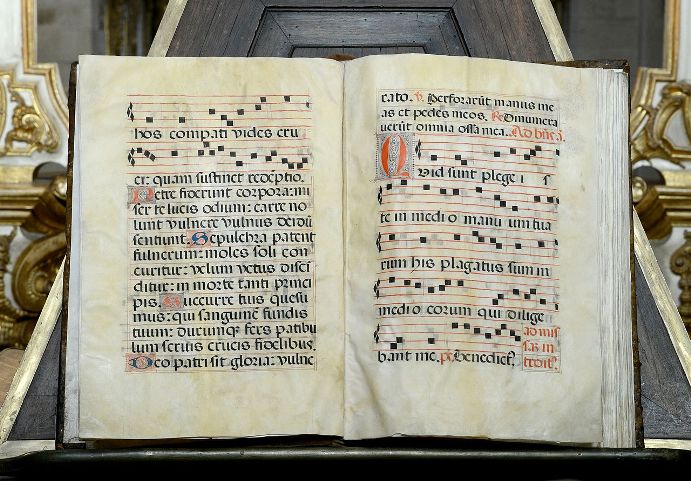 hos compati vides cru
cr: quam sustinet redēptio.
Petre fiderunt corpora: mi
ser te lucis odium: carre no
lunt vulnere vulnus
sentiunt. Sepulchra patent
fulnerum: moles soli con
cutitur: velum vetus
ditur: in morte tanti princi
pis. Succurre tuis quesu
mus: qui sanguine fundis
tuum: durumq; fers patibu
lum seruis crucis fidelibus.
Deo patri sit gloria: vulne
cato. v. Perforarūt manus me
as et pedes meos. R Dinumera
uerūt omnia ossa mea. Ad
Quid sunt plege i s
te in medio manuum tua
rum his plagatus sum in
medio eorum qui dilige
bant me. ps Benedict'.
ad mis
sas in
troit'.